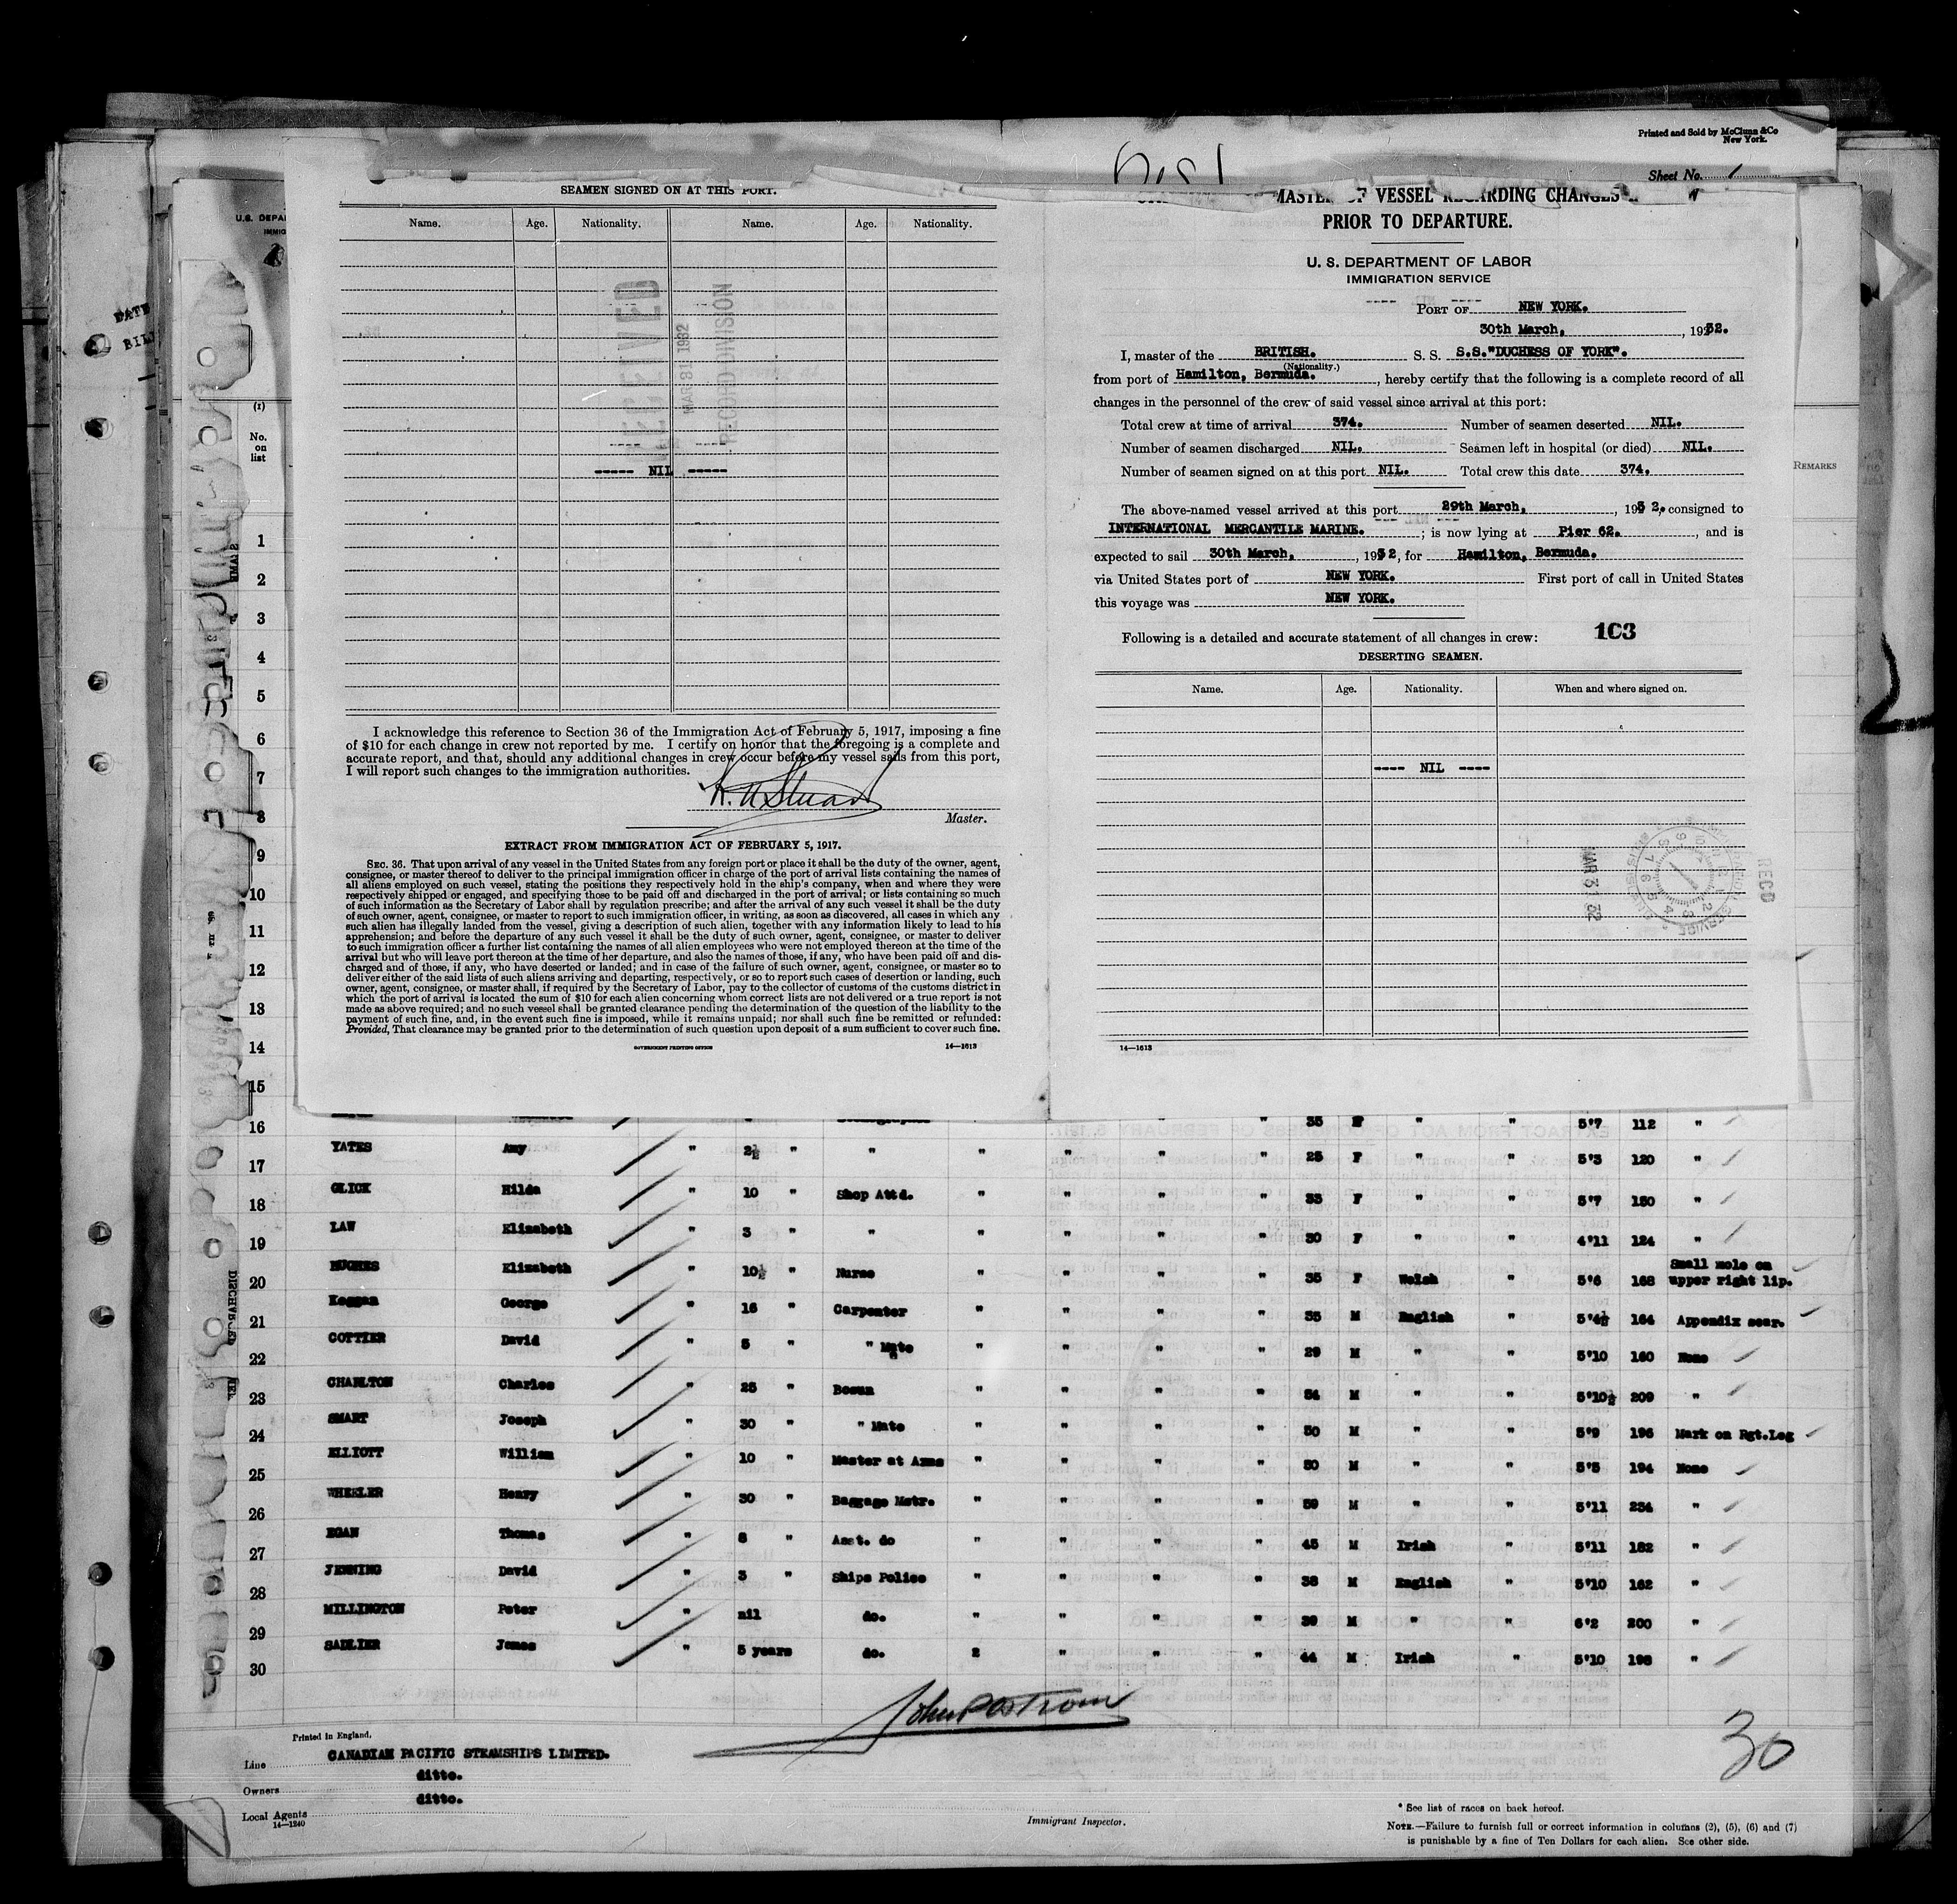 Printed and Sold by McClunn & Co
New York.
Sheet No. 1
SEAMEN SIGNED ON AT THIS PORT.
Name. Age. Nationality. Name. Age. Nationality.
RECEIVED
MAR 31 1932
RECORD DIVISION
----- NIL -----
I acknowledge this reference to Section 36 of the Immigration Act of February 5, 1917, imposing a fine
of $10 for each change in crew not reported by me. I certify on honor that the foregoing is a complete and
accurate report, and that, should any additional changes in crew occur before my vessel sails from this port,
I will report such changes to the immigration authorities.
Master.
EXTRACT FROM IMMIGRATION ACT OF FEBRUARY 5, 1917.
SEC. 36. That upon arrival of any vessel in the United States from any foreign port or place it shall be the duty of the owner, agent,
consignee, or master thereof to deliver to the principal immigration officer in charge of the port of arrival lists containing the names of
all aliens employed on such vessel, stating the positions they respectively hold in the ship's company, when and where they were
respectively shipped or engaged, and specifying those to be paid off and discharged in the port of arrival; or lists containing so much
of such information as the Secretary of Labor shall by regulation prescribe; and after the arrival of any such vessel it shall be the duty
of such owner, agent, consignee, or master to report to such immigration officer, in writing, as soon as discovered, all cases in which any
such alien has illegally landed from the vessel, giving a description of such alien, together with any information likely to lead to his
apprehension; and before the departure of any such vessel it shall be the duty of such owner, agent, consignee, or master to deliver
to such immigration officer a further list containing the names of all alien employees who were not employed thereon at the time of the
arrival but who will leave port thereon at the time of her departure, and also the names of those, if any, who have been paid off and dis-
charged and of those, if any, who have deserted or landed; and in case of the failure of such owner, agent, consignee, or master so to
deliver either of the said lists of such aliens arriving and departing, respectively, or so to report such cases of desertion or landing, such
owner, agent, consignee, or master shall, if required by the Secretary of Labor, pay to the collector of customs of the customs district in
which the port of arrival is located the sum of $10 for each alien concerning whom correct lists are not delivered or a true report is not
made as above required; and no such vessel shall be granted clearance pending the determination of the question of the liability to the
payment of such fine, and, in the event such fine is imposed, while it remains unpaid; nor shall such fine be remitted or refunded:
Provided, That clearance may be granted prior to the determination of such question upon deposit of a sum sufficient to cover such fine.
GOVERNMENT PRINTING OFFICE 14—1613
MASTER OF VESSEL REGARDING CHANGES
PRIOR TO DEPARTURE.
U. S. DEPARTMENT OF LABOR
IMMIGRATION SERVICE
PORT OF NEW YORK.
30th March, , 1932.
I, master of the BRITISH. S. S. S.S."DUCHESS OF YORK".
(Nationality.)
from port of Hamilton, Bermuda. , hereby certify that the following is a complete record of all
changes in the personnel of the crew of said vessel since arrival at this port:
Total crew at time of arrival 374. Number of seamen deserted NIL.
Number of seamen discharged NIL. Seamen left in hospital (or died) NIL.
Number of seamen signed on at this port NIL. Total crew this date 374.
The above-named vessel arrived at this port 29th March, , 1932, consigned to
INTERNATIONAL MERCANTILE MARINE. ; is now lying at Pier 62. , and is
expected to sail 30th March, , 1932, for Hamilton, Bermuda.
via United States port of NEW YORK. First port of call in United States
this voyage was NEW YORK.
Following is a detailed and accurate statement of all changes in crew: 103
DESERTING SEAMEN.
Name. Age. Nationality. When and where signed on.
---- NIL ----
14—1613
REMARKS
(1)
No.
on
list
1
2
3
4
5
6
7
8
9
10
11
12
13
14
15
16 " 35 F " " 5'7 112 "
17 YATES Amy " 2½ " " " " " " 25 F " " 5'3 120 "
18 GLICK Hilda " 10 " Shop Attd. " " " " 33 F " " 5'7 150 "
19 LAW Elizabeth " 3 " " " " " " 30 F " " 4'11 124 "
20 HUGHES Elizabeth " 10½ " Nurse " " " " 35 F Welsh " 5'6 168 Small mole on upper right lip.
21 Keggan George " 16 " Carpenter " " " " 35 M English " 5'4½ 164 Appendix scar.
22 COTTIER David " 5 " " Mate " " " " 29 M " " 5'10 160 None
23 CHARLTON Charles " 25 " Bosun " " " " 54 M " " 5'10½ 209 "
24 SMART Joseph " 30 " " Mate " " " " 50 M " " 5'9 196 Mark on Rgt.Leg
25 ELLIOTT William " 10 " Master at Arms " " " " 50 M " " 5'5 194 None
26 WHEELER Henry " 30 " Baggage Mstr. " " " " 59 M " " 5'11 234 "
27 EGAN Thomas " 8 " Asst. do " " " " 45 M Irish " 5'11 182 "
28 JENNING David " 3 " Ships Police " " " " 38 M English " 5'10 162 "
29 MILLINGTON Peter " nil do. " " " " 39 M " " 6'2 200 "
30 SADLIER James " 5 years do. 2 " " " 44 M Irish " 5'10 198 "
30
Printed in England.
Line CANADIAN PACIFIC STEAMSHIPS LIMITED.
Owners ditto.
Local Agents ditto.
14—1240
Immigrant Inspector.
* See list of races on back hereof.
NOTE.—Failure to furnish full or correct information in columns (2), (5), (6) and (7)
is punishable by a fine of Ten Dollars for each alien. See other side.